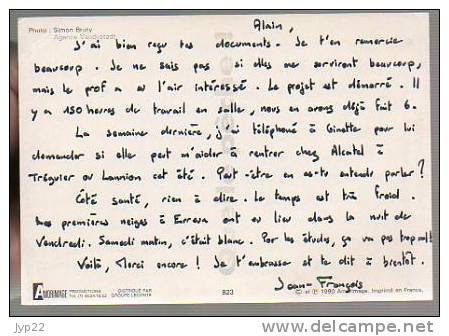 Photo : Simon Bruty
Agence Vandystadt
Alain,
J'ai bien reçu tes documents. Je t'en remercie
beaucoup. Je ne sais pas si elles me serviront beaucoup,
mais le prof a eu l'air intéressé. Le projet est démarré. Il
y a 150 heures de travail en salle, nous en avons déjà fait 6.
La semaine dernière, j'ai téléphoné à Ginette pour lui
demander si elle peut m'aider à rentrer chez Alcatel à
Tréguier ou Lannion cet été. Peut-être en as-tu entendu parler ?
Côté santé, rien à dire. Le temps est très froid.
Les premières neiges à ont eu lieu dans la nuit de
Vendredi. Samedi matin, c'était blanc. Par les études, ça va pas trop mal !
Voilà, Merci encore ! Je t'embrasse et te dit à bientôt.
Jean-François
PRODUCTIONS
DISTRIBUÉ PAR
GROUPE LEGENTIL
823
© et ℗ 1990 Amorimage. Imprimé en France.
jyp22
delcampe.net